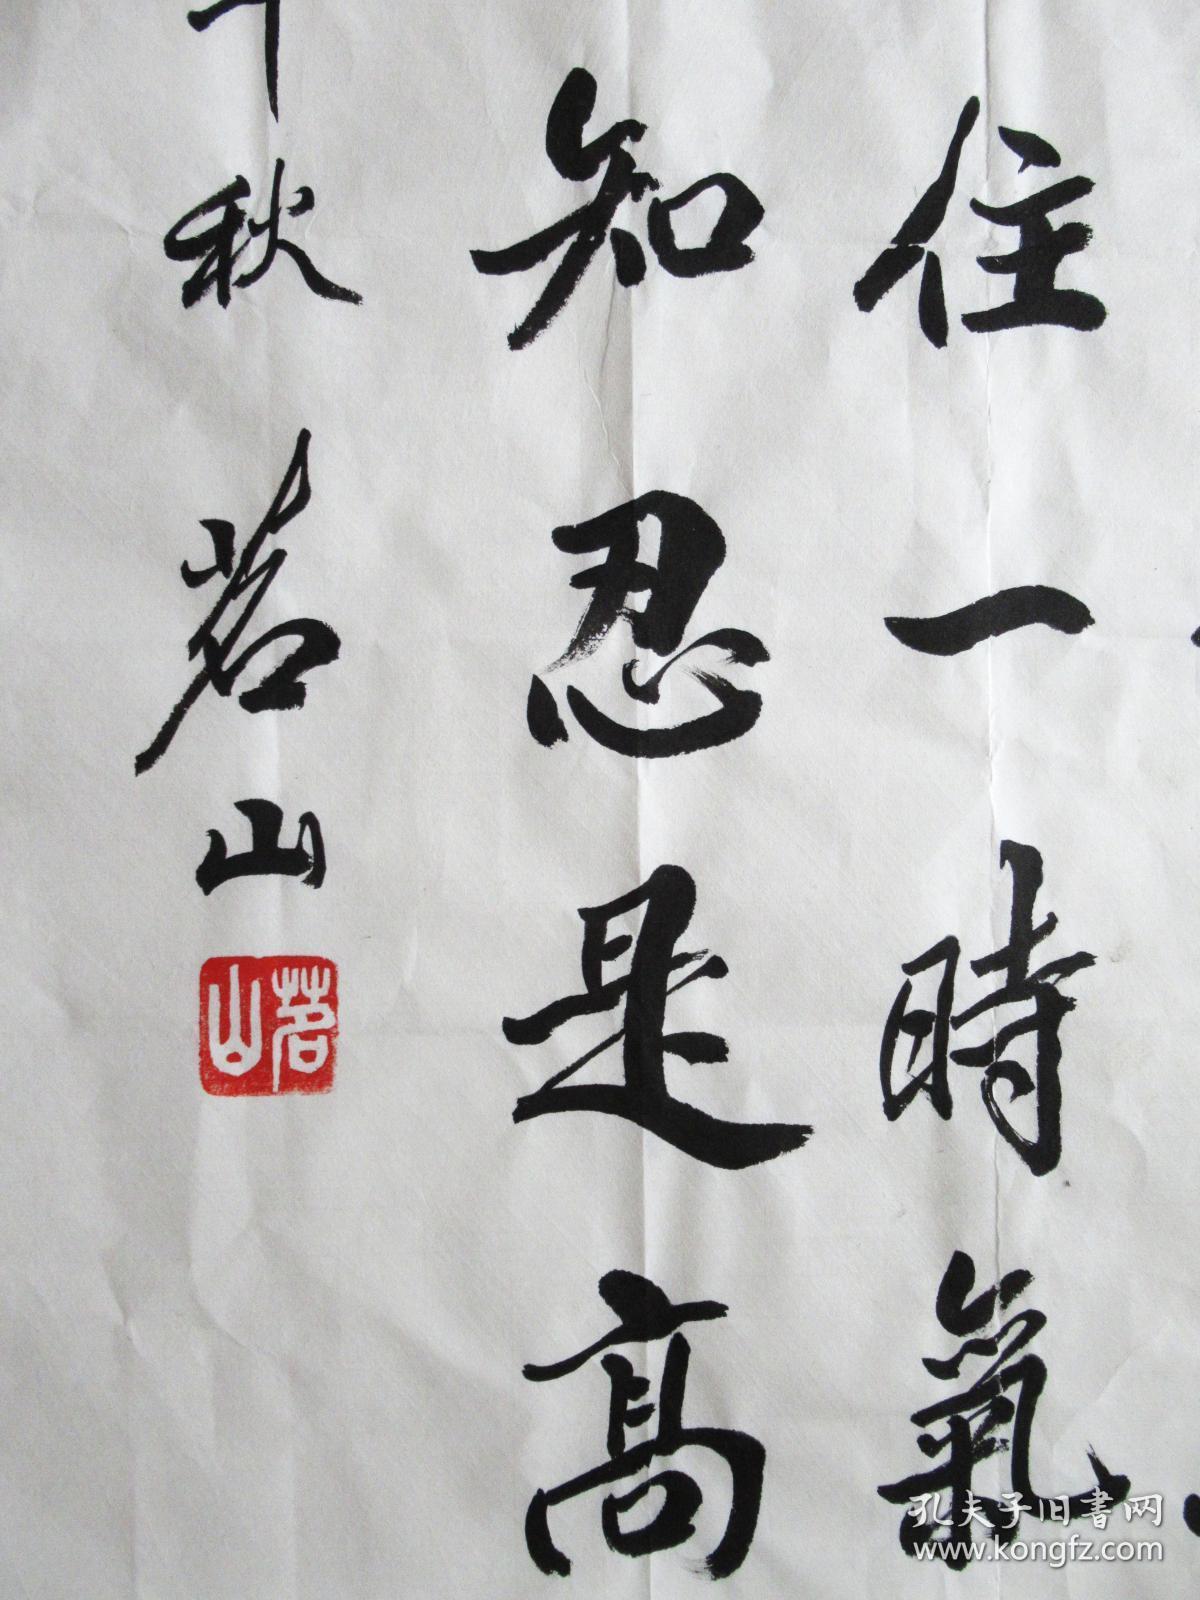 住一時氣
知忍是高
秋茗山
茗山
孔夫子旧书网
www.kongfz.com